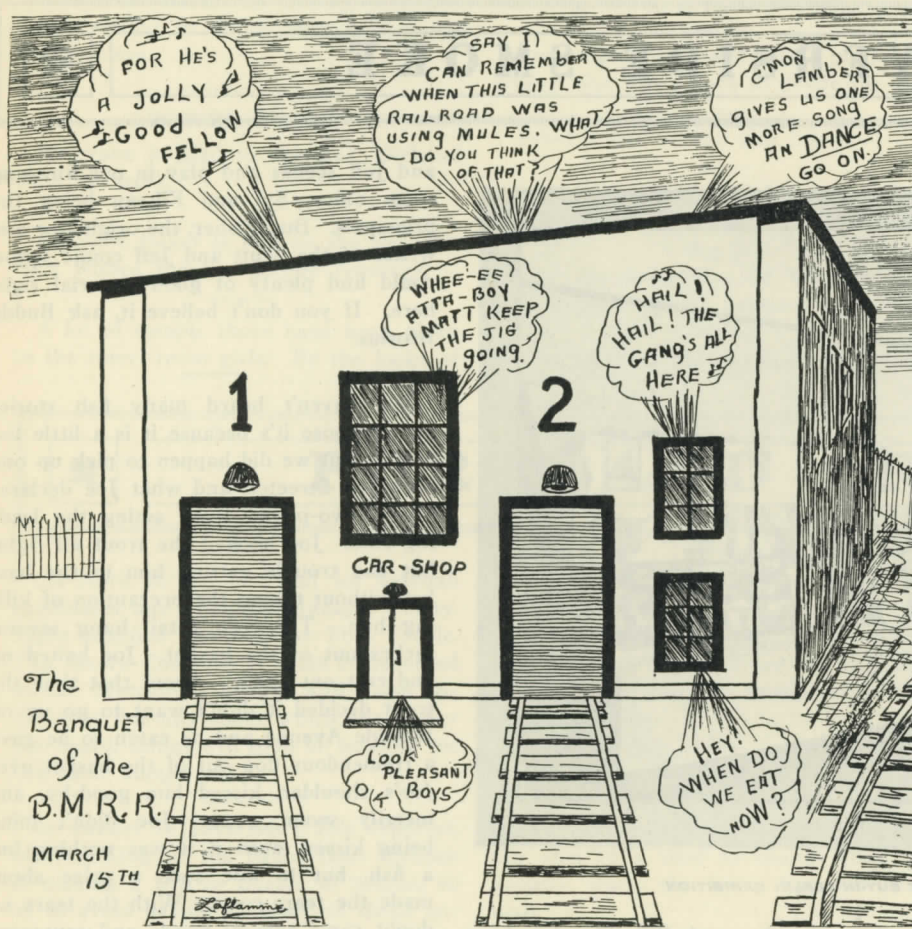 FOR HE'S
A JOLLY
GOOD
FELLOW
SAY I
CAN REMEMBER
WHEN THIS LITTLE
RAILROAD WAS
USING MULES. WHAT
DO YOU THINK
OF THAT?
C'MON
LAMBERT
GIVES US ONE
MORE SONG
AN DANCE
GO ON.
WHEE-EE!
ATTA-BOY
MATT KEEP
THE JIG
GOING.
HAIL!
HAIL! THE
GANG'S ALL
HERE
1
2
CAR-SHOP
1
LOOK
PLEASANT
BOYS
O.K.
HEY!
WHEN DO
WE EAT
NOW?
The
BANQUET
of the
B.M.R.R.
MARCH
15TH
Laflamme